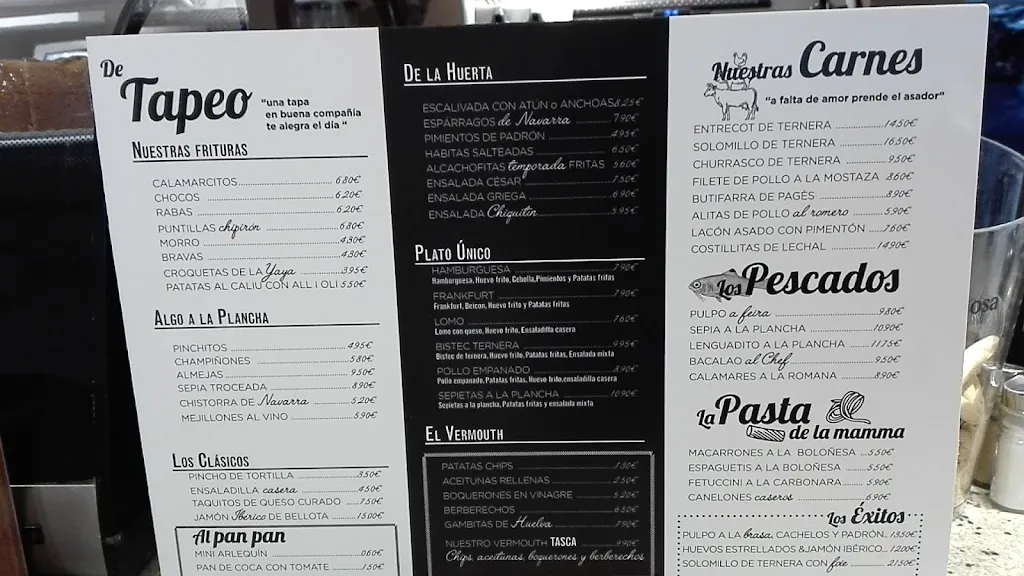 De
Tapeo
"una tapa
en buena compañía
te alegra el día "
NUESTRAS FRITURAS
CALAMARCITOS ........ 6.80€
CHOCOS ........ 6.20€
RABAS ........ 6.20€
PUNTILLAS chipirón ........ 6.80€
MORRO ........ 4.30€
BRAVAS ........ 4.30€
CROQUETAS DE LA Yaya ........ 3.95€
PATATAS AL CALIU CON ALL I OLI 5.50€
ALGO A LA PLANCHA
PINCHITOS ........ 4.95€
CHAMPIÑONES ........ 5.80€
ALMEJAS ........ 9.50€
SEPIA TROCEADA ........ 8.90€
CHISTORRA DE Navarra ........ 5.20€
MEJILLONES AL VINO ........ 5.90€
LOS CLÁSICOS
PINCHO DE TORTILLA ........ 3.50€
ENSALADILLA casera ........ 4.50€
TAQUITOS DE QUESO CURADO ........ 7.50€
JAMÓN Ibérico DE BELLOTA ........ 15.00€
Al pan pan
MINI ARLEQUÍN ........ 0.60€
PAN DE COCA CON TOMATE ........ 1.50€
DE LA HUERTA
ESCALIVADA CON ATÚN o ANCHOAS 8.25€
ESPÁRRAGOS de Navarra ........ 7.90€
PIMIENTOS DE PADRÓN ........ 4.95€
HABITAS SALTEADAS ........ 6.50€
ALCACHOFITAS temporada FRITAS 5.60€
ENSALADA CÉSAR ........ 7.50€
ENSALADA GRIEGA ........ 6.90€
ENSALADA Chiquitín ........ 5.95€
PLATO ÚNICO
HAMBURGUESA ........ 7.90€
Hamburguesa, Huevo frito, Cebolla,Pimientos y Patatas fritas
FRANKFURT ........ 7.90€
Frankfurt, Beicon, Huevo frito y Patatas fritas
LOMO ........ 7.60€
Lomo con queso, Huevo frito, Ensaladilla casera
BISTEC TERNERA ........ 9.95€
Bistec de ternera, Huevo frito, Patatas fritas, Ensalada mixta
POLLO EMPANADO ........ 8.90€
Pollo empanado, Patatas fritas, Huevo frito,ensaladilla casera
SEPIETAS A LA PLANCHA ........ 10.90€
Sepietas a la plancha, Patatas fritas y ensalada mixta
EL VERMOUTH
PATATAS CHIPS ........ 1.50€
ACEITUNAS RELLENAS ........ 2.50€
BOQUERONES EN VINAGRE ........ 5.20€
BERBERECHOS ........ 6.50€
GAMBITAS DE Huelva ........ 7.90€
NUESTRO VERMOUTH TASCA ........ 9.90€
Chips, aceitunas, boquerones y berberechos
Nuestras Carnes
"a falta de amor prende el asador"
ENTRECOT DE TERNERA ........ 14.50€
SOLOMILLO DE TERNERA ........ 16.50€
CHURRASCO DE TERNERA ........ 9.50€
FILETE DE POLLO A LA MOSTAZA .8.60€
BUTIFARRA DE PAGÈS ........ 8.90€
ALITAS DE POLLO al romero ........ 5.90€
LACÓN ASADO CON PIMENTÓN ........ 7.60€
COSTILLITAS DE LECHAL ........ 14.90€
Los Pescados
PULPO a feira ........ 9.80€
SEPIA A LA PLANCHA ........ 10.90€
LENGUADITO A LA PLANCHA ........ 11.75€
BACALAO al Chef ........ 9.50€
CALAMARES A LA ROMANA ........ 8.90€
La Pasta
de la mamma
MACARRONES A LA BOLOÑESA ...5.50€
ESPAGUETIS A LA BOLOÑESA ........ 5.50€
FETUCCINI A LA CARBONARA ........ 5.90€
CANELONES caseros ........ 6.90€
Los Éxitos
PULPO A LA brasa, CACHELOS Y PADRÓN...13.50€
HUEVOS ESTRELLADOS &JAMÓN IBÉRICO... 12.00€
SOLOMILLO DE TERNERA CON foie ........ 21.50€
osa